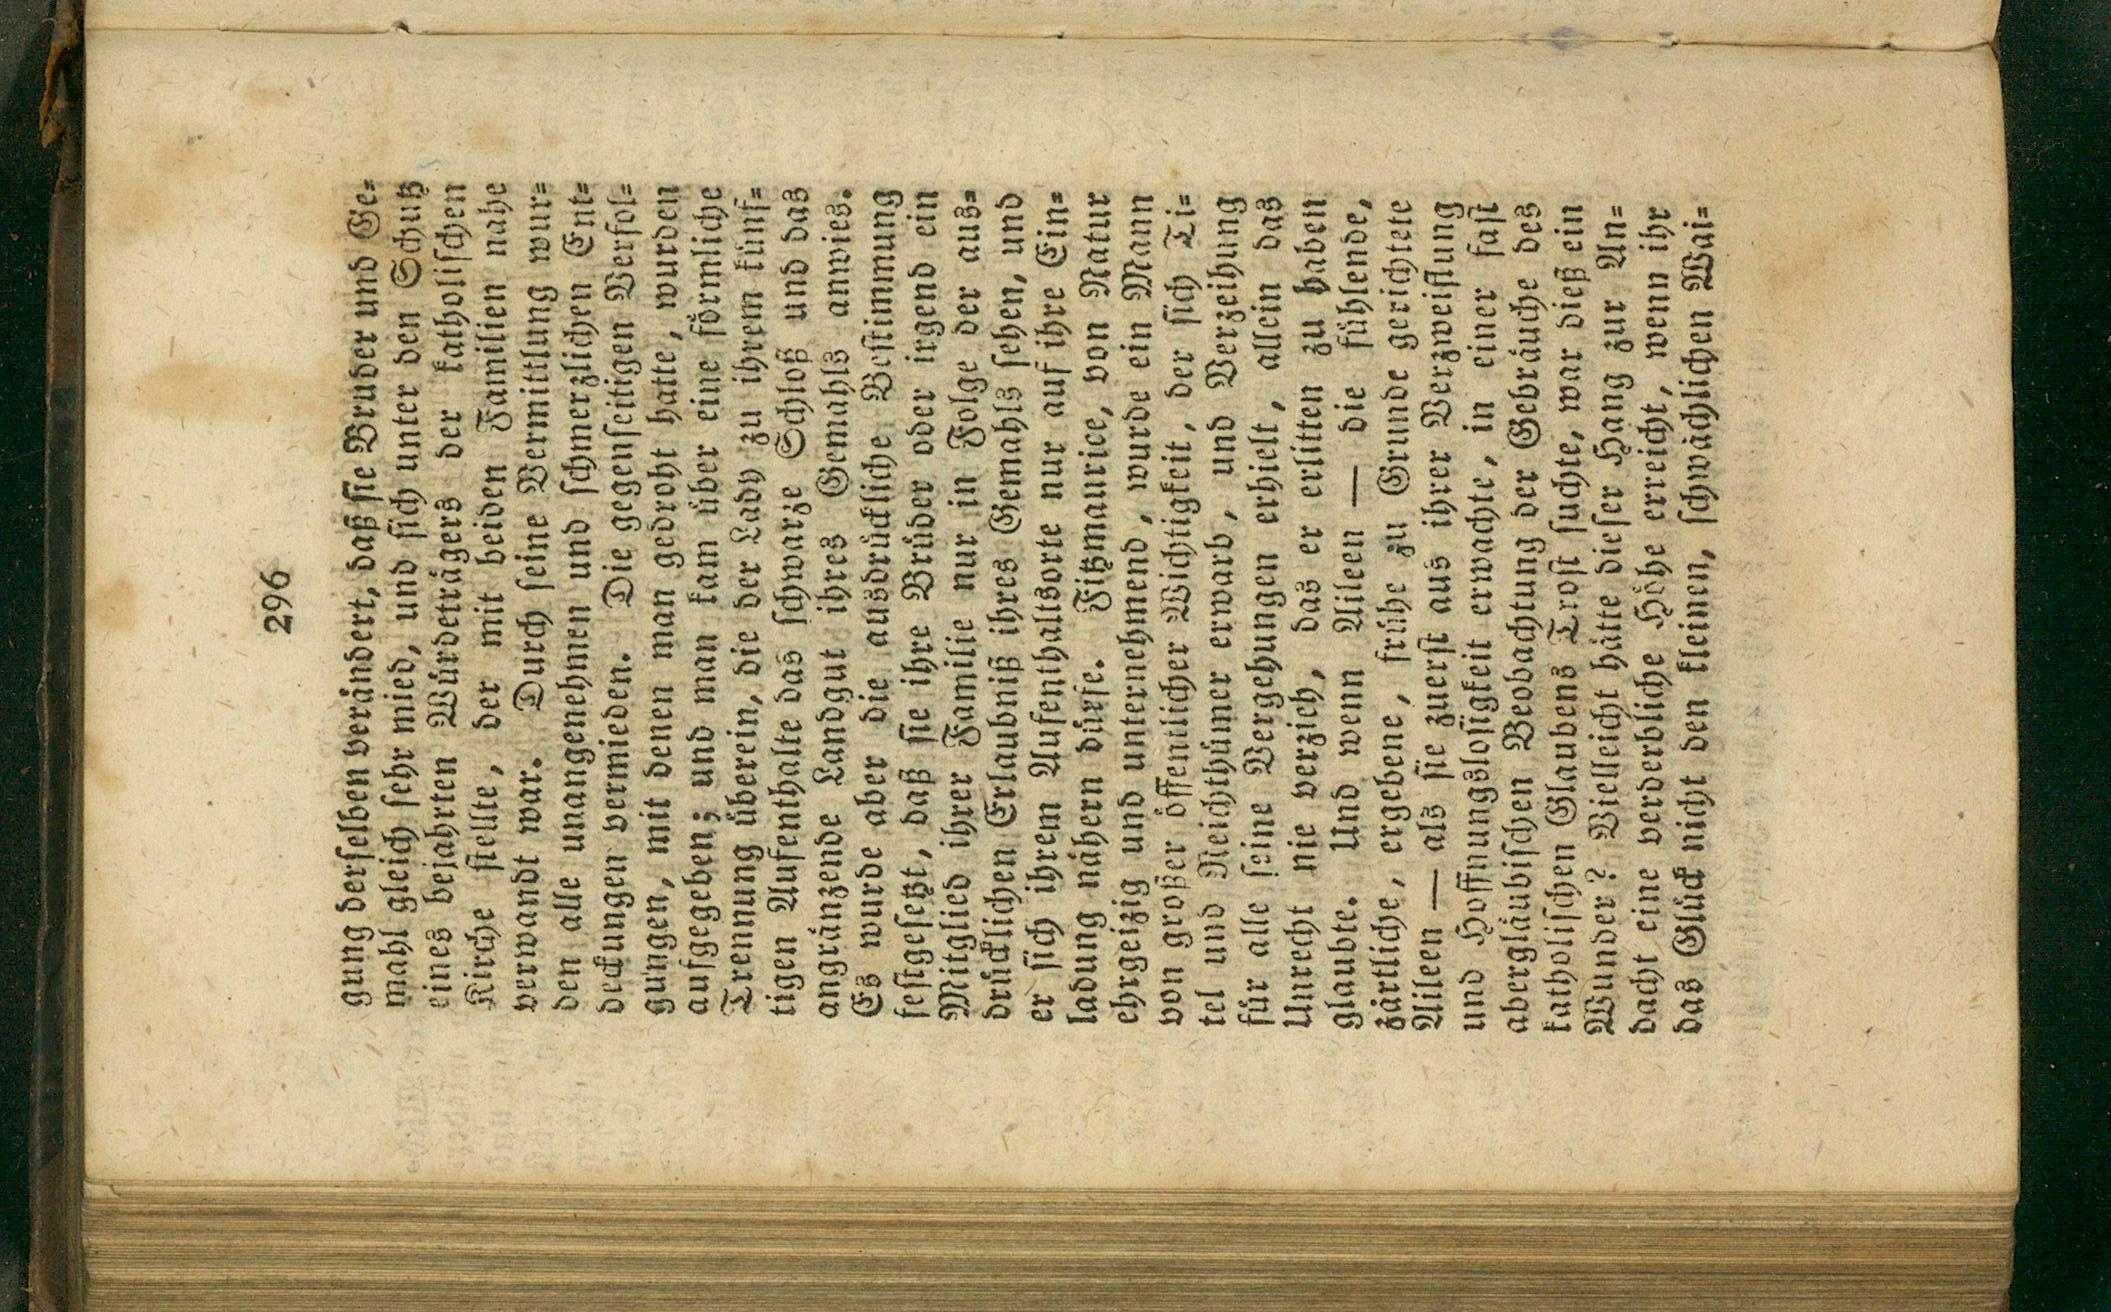 296
gung derselben verändert, daß sie Bruder und Ge=
mahl gleich sehr mied, und sich unter den Schutz
eines bejahrten Würdeträgers der katholischen
Kirche stellte, der mit beiden Familien nahe
verwandt war. Durch seine Vermittlung wur=
den alle unangenehmen und schmerzlichen Ent=
deckungen vermieden. Die gegenseitigen Verfol=
gungen, mit denen man gedroht hatte, wurden
aufgegeben; und man kam über eine förmliche
Trennung überein, die der Lady zu ihrem künf=
tigen Aufenthalte das schwarze Schloß und das
angränzende Landgut ihres Gemahls anwies.
Es wurde aber die ausdrückliche Bestimmung
festgesetzt, daß sie ihre Brüder oder irgend ein
Mitglied ihrer Familie nur in Folge der aus=
drücklichen Erlaubniß ihres Gemahls sehen, und
er sich ihrem Aufenthaltsorte nur auf ihre Ein=
ladung nähern dürfe. Fitzmaurice, von Natur
ehrgeizig und unternehmend, wurde ein Mann
von großer öffentlicher Wichtigkeit, der sich Ti=
tel und Reichthümer erwarb, und Verzeihung
für alle seine Vergehungen erhielt, allein das
Unrecht nie verzieh, das er erlitten zu haben
glaubte. Und wenn Aileen — die fühlende,
zärtliche, ergebene, frühe zu Grunde gerichtete
Aileen — als sie zuerst aus ihrer Verzweiflung
und Hoffnungslosigkeit erwachte, in einer fast
abergläubischen Beobachtung der Gebräuche des
katholischen Glaubens Trost suchte, war dieß ein
Wunder? Vielleicht hätte dieser Hang zur An=
dacht eine verderbliche Höhe erreicht, wenn ihr
das Glück nicht den kleinen, schwächlichen Wai=